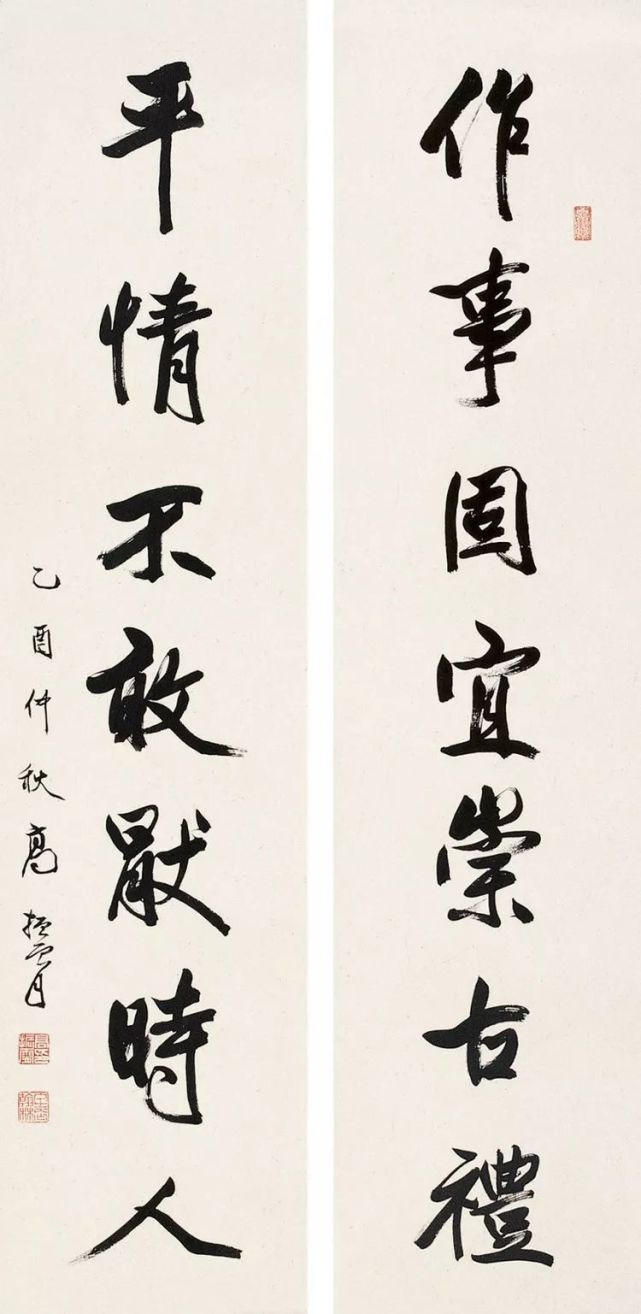 作事固宜崇古禮
平情不敢猒時人
乙酉仲秋高振霄